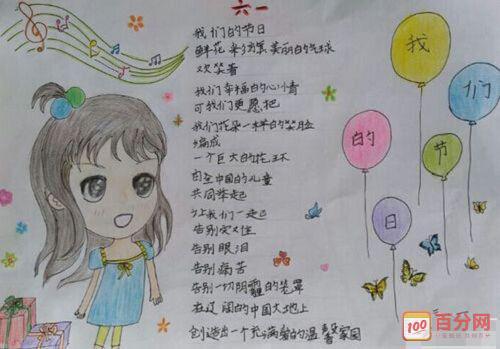 六一
我们的节日
鲜花 彩绸 美丽的气球
欢笑着
我们幸福的心儿啊
可我们更愿把
我们花朵一样的笑脸
编成
一个巨大的花环
由全中国的儿童
共同举起
让我们一起
告别灾难
告别眼泪
告别痛苦
告别一切阴霾的笼罩
在辽阔的中国大地上
创造出一个充满着的温馨家园
我
们
的
节
日
100
百分网